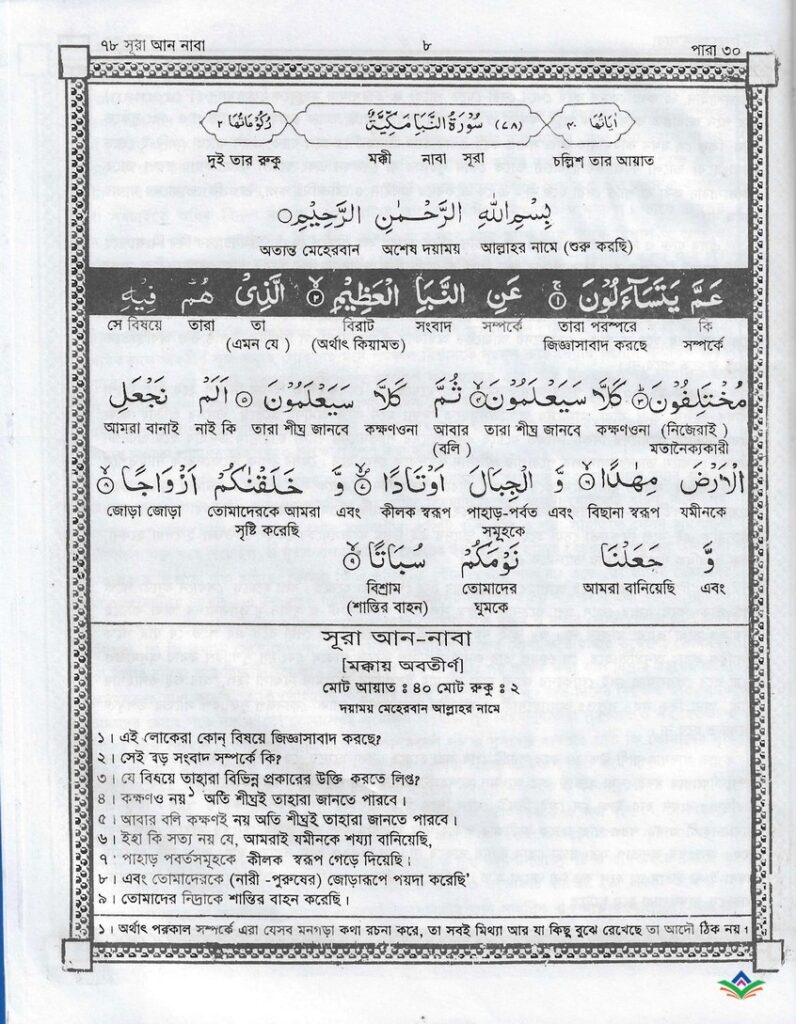 ৭৮ সূরা আন নাবা ৮ পারা ৩০
اٰيَاتُهَا ٤٠ (٧٨) سُوْرَةُ النَّبَاِ مَكِّيَّةٌ رُكُوْعَاتُهَا ٢
দুই তার রুকু মক্কী নাবা সূরা চল্লিশ তার আয়াত
بِسْمِ اللّٰهِ الرَّحْمٰنِ الرَّحِيْمِ
অত্যন্ত মেহেরবান অশেষ দয়াময় আল্লাহর নামে (শুরু করছি)
عَمَّ يَتَسَآءَلُوْنَ ۝١ عَنِ النَّبَاِ الْعَظِيْمِ ۝٢ الَّذِىْ هُمْ فِيْهِ
সে বিষয়ে তারা তা বিরাট সংবাদ সম্পর্কে তারা পরস্পরে কি
(এমন যে ) (অর্থাৎ কিয়ামত) জিজ্ঞাসাবাদ করছে সম্পর্কে
مُخْتَلِفُوْنَ ۝٣ كَلَّا سَيَعْلَمُوْنَ ۝٤ ثُمَّ كَلَّا سَيَعْلَمُوْنَ ۝٥ اَلَمْ نَجْعَلِ
আমরা বানাই নাই কি তারা শীঘ্র জানবে কক্ষণওনা আবার তারা শীঘ্র জানবে কক্ষণওনা (নিজেরাই )
(বলি ) মতানৈক্যকারী
الْاَرْضَ مِهٰدًا ۝٦ وَّ الْجِبَالَ اَوْتَادًا ۝٧ وَّ خَلَقْنٰكُمْ اَزْوَاجًا ۝٨
জোড়া জোড়া তোমাদেরকে আমরা এবং কীলক স্বরূপ পাহাড়-পর্বত এবং বিছানা স্বরূপ যমীনকে
সৃষ্টি করেছি সমূহকে
وَّ جَعَلْنَا نَوْمَكُمْ سُبَاتًا ۝٩
বিশ্রাম তোমাদের আমরা বানিয়েছি এবং
(শান্তির বাহন) ঘুমকে
সূরা আন-নাবা
[মক্কায় অবতীর্ণ]
মোট আয়াত : ৪০ মোট রুকু : ২
দয়াময় মেহেরবান আল্লাহর নামে
১। এই লোকেরা কোন্ বিষয়ে জিজ্ঞাসাবাদ করছে?
২। সেই বড় সংবাদ সম্পর্কে কি?
৩। যে বিষয়ে তাহারা বিভিন্ন প্রকারের উক্তি করতে লিপ্ত?
৪। কক্ষণও নয়১ অতি শীঘ্রই তাহারা জানতে পারবে।
৫। আবার বলি কক্ষণই নয় অতি শীঘ্রই তাহারা জানতে পারবে।
৬। ইহা কি সত্য নয় যে, আমরাই যমীনকে শয্যা বানিয়েছি,
৭। পাহাড় পবর্তসমূহকে কীলক স্বরূপ গেড়ে দিয়েছি।
৮। এবং তোমাদেরকে (নারী -পুরুষের) জোড়ারূপে পয়দা করেছি'
৯। তোমাদের নিদ্রাকে শান্তির বাহন করেছি।
১। অর্থাৎ পরকাল সম্পর্কে এরা যেসব মনগড়া কথা রচনা করে, তা সবই মিথ্যা আর যা কিছু বুঝে রেখেছে তা আদৌ ঠিক নয়।